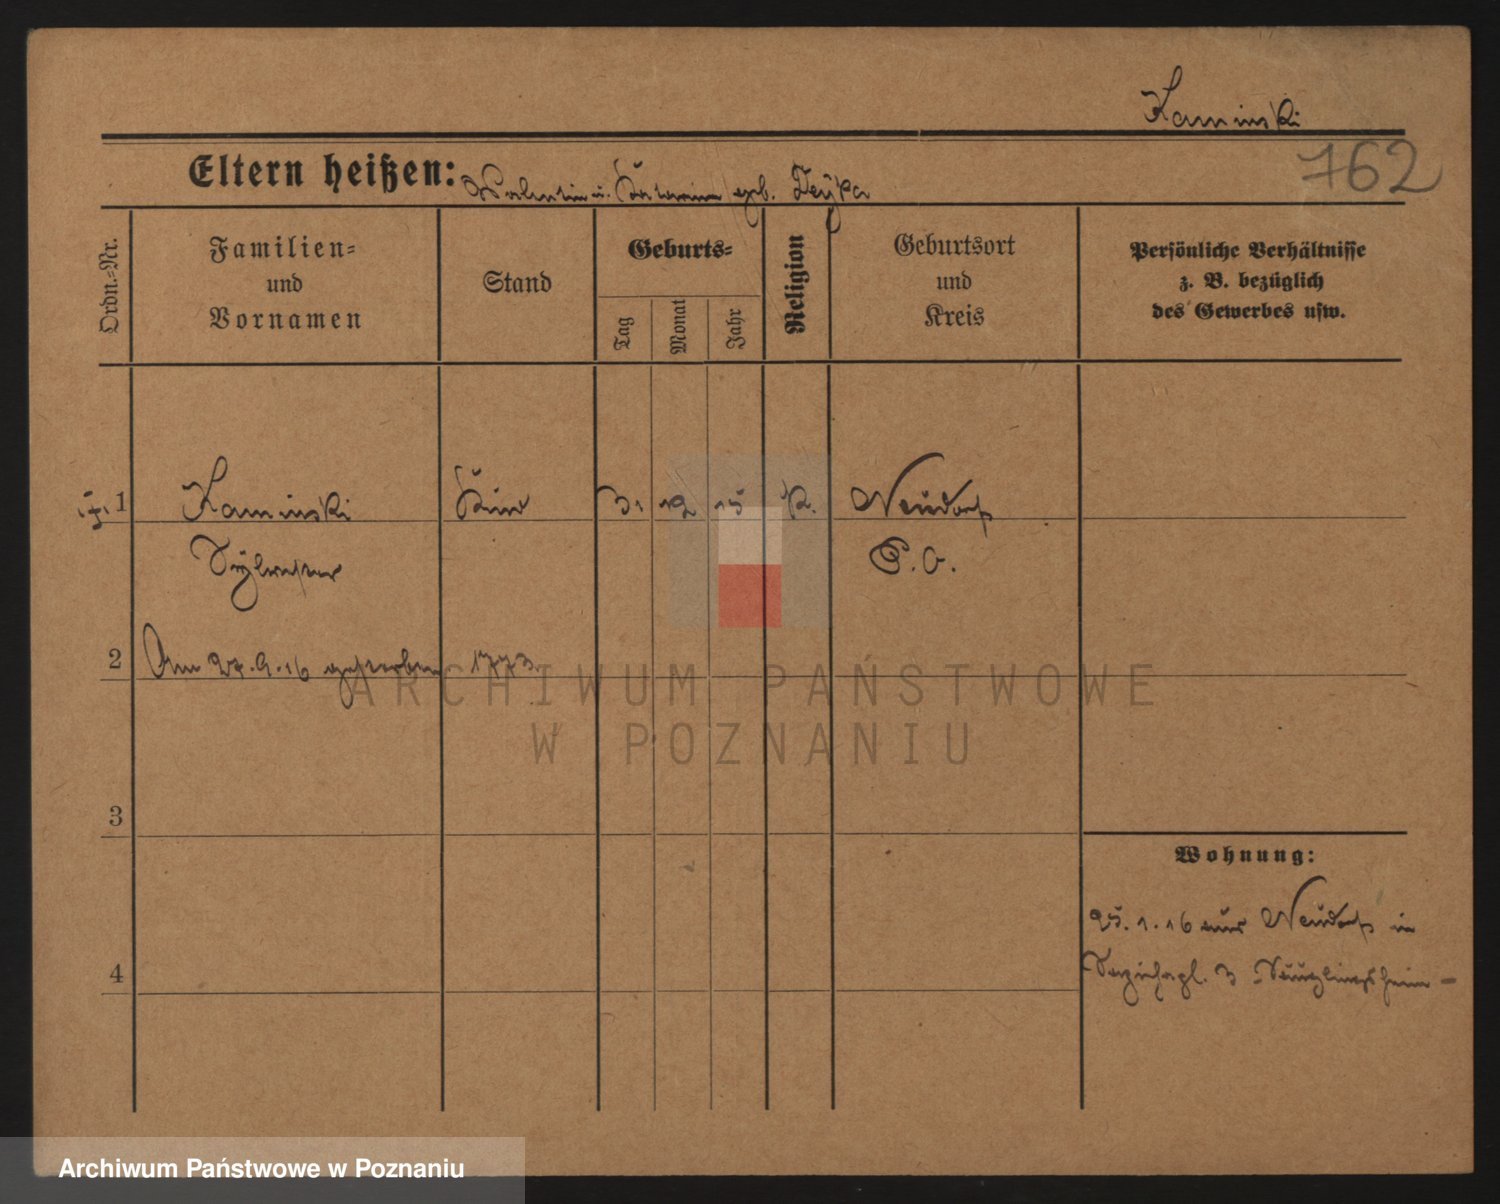 Kaminski
762
Eltern heißen: Valentin u. Katarina geb. Deyka
Ordn.-Nr.
Familien-
und
Vornamen
Stand
Geburts-
Tag
Monat
Jahr
Religion
Geburtsort
und
Kreis
Persönliche Verhältnisse
z. B. bezüglich
des Gewerbes usw.
1 Kaminski Kind 31 12 15 K. Neudorf
Sylvester P. O.
2 Am 27.9.16 gestorben 1773.
3
4
Wohnung:
25.1.16 aus Neudorf in
3 Säuglingsheim -
ARCHIWUM PAŃSTWOWE
W POZNANIU
Archiwum Państwowe w Poznaniu